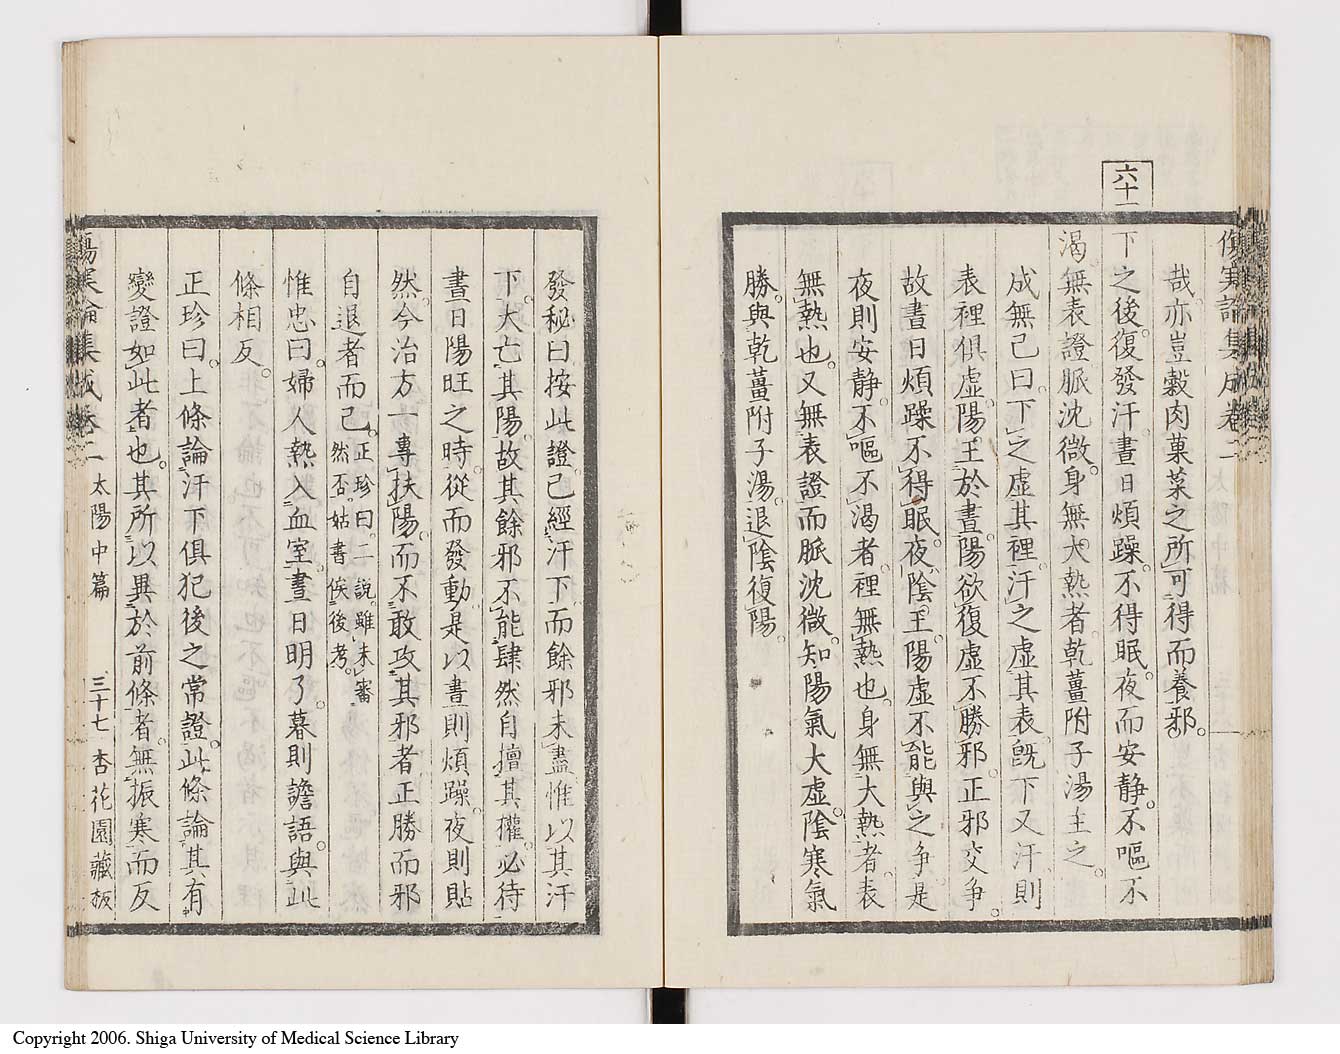 六十一
傷寒論集成卷二
哉。亦豈穀肉菓菜之所可得而養邪。
下之後。復發汗。晝日煩躁。不得眠。夜而安靜。不嘔不
渴。無表證。脈沈微。身無大熱者。乾薑附子湯主之。
成無己曰。下之虛其裡。汗之虛其表。既下又汗。則
表裡俱虛。陽王於晝。陽欲復。虛不勝邪。正邪交爭。
故晝日煩躁不得眠。夜陰王。陽虛不能與之爭。是
夜則安靜。不嘔不渴者。裡無熱也。身無大熱者。表
無熱也。又無表證而脈沈微。知陽氣大虛。陰寒氣
勝。與乾薑附子湯。退陰復陽。
發秘曰按此證。已經汗下。而餘邪未盡。惟以其汗
下。大亡其陽。故其餘邪不能肆然自擅其權。必待
晝日陽旺之時。從而發動。是以晝則煩躁。夜則貼
然。今治方一專扶陽。而不敢攻其邪者。正勝而邪
自退者而已。正珍曰。二說雖未審
然否。姑書俟後考。
惟忠曰。婦人熱入血室。晝日明了。暮則譫語。與此
條相反。
正珍曰。上條論汗下俱犯後之常證。此條論其有
變證如此者也。其所以異於前條者。無振寒而反
傷寒論集成卷二 太陽中篇 三十七 杏花園藏板
Copyright 2006. Shiga University of Medical Science Library